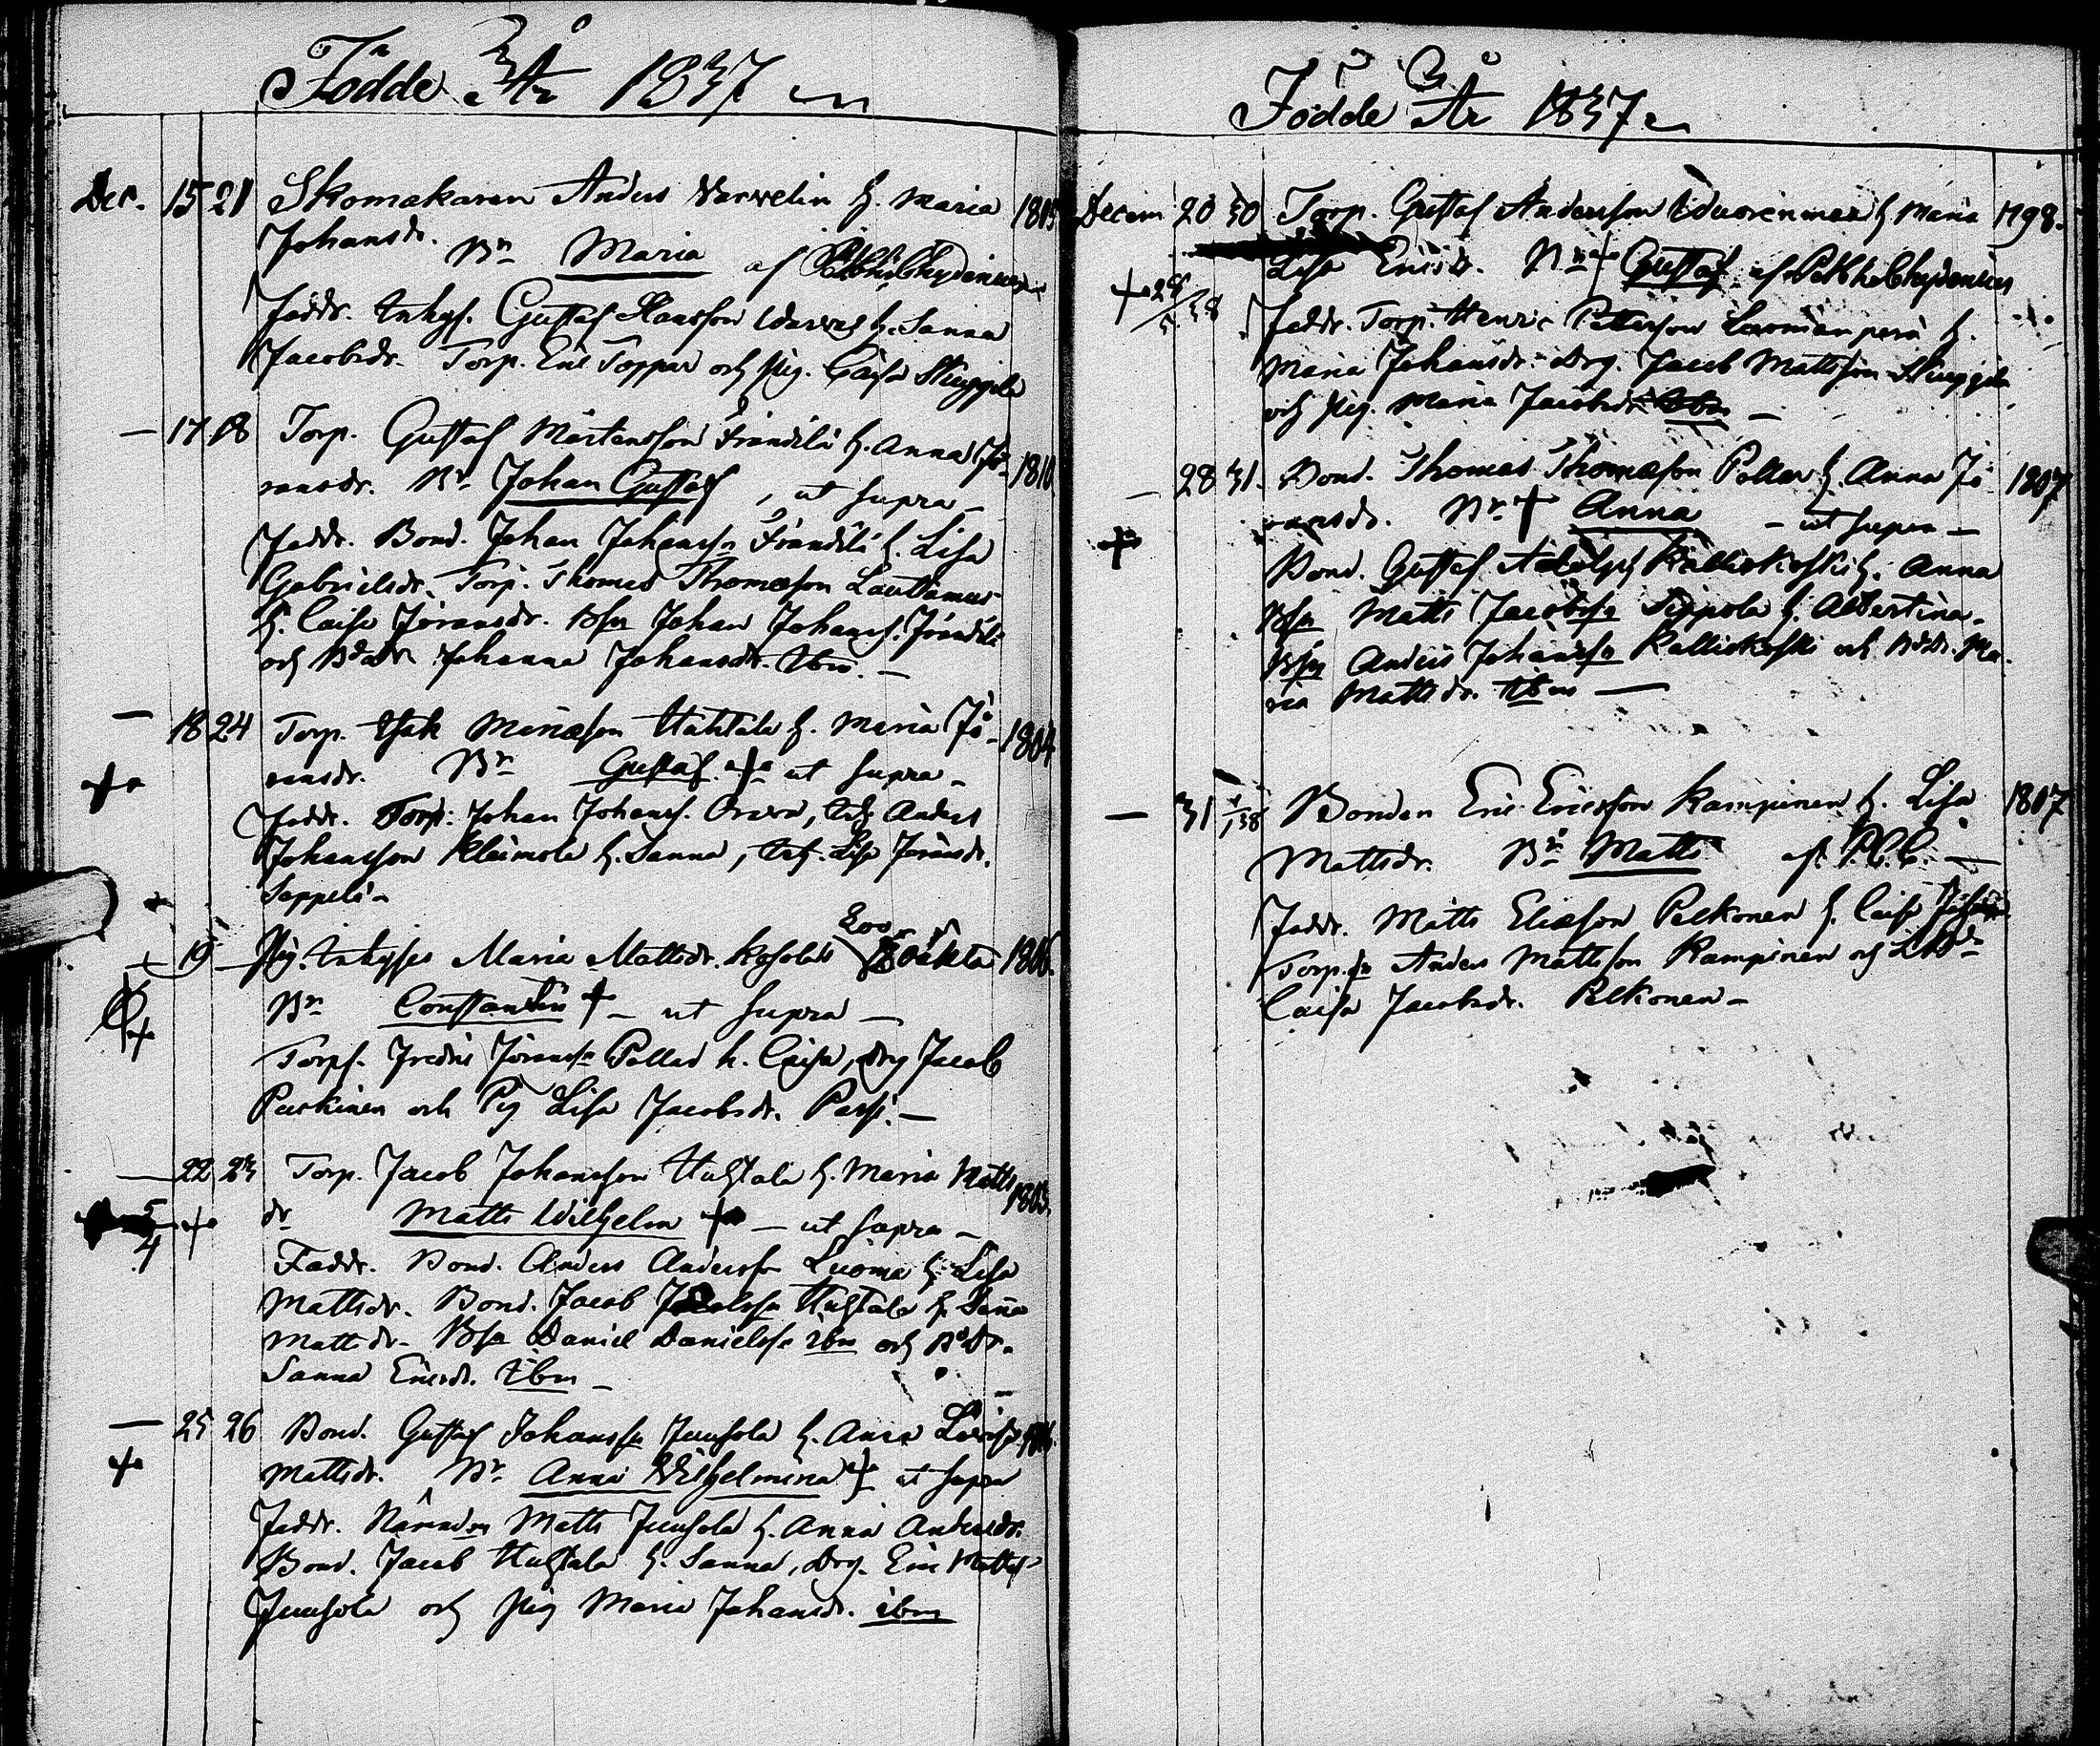 Födde År 1837
Dec. 15 21 Skomakaren Anders Varvelin h. Maria 1805
Johansdr. Bn Maria af
Faddr. Inhys. Gustaf Hansson h. Sanna
Jacobsdr. Torp. Eric Toppar och Pig. Caisa Skuggela
— 17 18 Torp. Gustaf Mårtensson Frändilä h. Anna Jö- 1810
ransdr. Bn Johan Gustaf, ut supra —
Faddr. Bond. Johan Johanss. Frändilä h. Lisa
Gabrielsdr. Torp. Thomas Thomasson Lauttamus
h. Caisa Jöransdr. Bsn Johan Johanss. Frändilä
och Bdr Johanna Johansdr. ibm. —
— 18 24 Torp. Isak Mariæson Huhtala h. Maria Jö- 1804
ransdr. Bn Gustaf + ut supra —
Faddr. Torp. Johan Johanss. Orava, Anders
Johansson Kleimola h. Sanna, Lisa Jöransdr.
Seppelä —
— 19 Pig. Inhyses Maria Mattsdr. Kosola oäkta 1806.
Bn Constantin + — ut supra —
Torp. Fredric Jöranss. Pollari h. Caisa, Drg Jacob
Paskinen och Pig Lisa Jacobsdr. —
— 22 23 Torp. Jacob Johansson Huhtala h. Maria Matts 1803.
dr Matts Wilhelm + — ut supra —
5
4 +
Faddr. Bond. Anders Anderss. Luoma h. Lisa
Mattsdr. Bond. Jacob Jacobss. Huhtala h. Sanna
Mattsdr. Bsn Daniel Danielss. ibm och Bdr.
Sanna Ericsdr. ibm —
— 25 26 Bond. Gustaf Johansson Juusola h. Anna Lovisa
+ Mattsdr. Bn Anna Wilhelmina + ut supra
Faddr. Nämndem. Matts Juusola h. Anna Andersdr.
Bond. Jacob Huhtala h. Sanna, Drg. Eric Mattss.
Juusola och Pig Maria Johansdr. ibm
Födde År 1837
Decem 20 30 Torp. Gustaf Andersson h. Maria 1798.
Lisa Ericsdr. Bn + Gustaf af
Faddr. Torp. Henric Pettersson Luomanperä h.
Maria Johansdr. Drg. Jacob Mattsson Skuggela
och Pig. Maria Jacobsdr. ibm —
— 28 31. Bond. Thomas Thomasson Pollari h. Anna Jö- 1807
+ ransdr. Bn + Anna — ut supra —
Bond. Gustaf Adolph Kalliokoski h. Anna
Bsn Matts Jacobss. Seppola h. Albertina.
Bsn Anders Johanss. Kalliokoski och Bdr. Ma-
ria Mattsdr. ibm —
— 31 1/1 38 Bonden Eric Ericsson Kampinen h. Lisa 1807
Mattsdr. Bn Matts af —
Faddr. Matts Eliæson Pelkonen h. Caisa
Torp. Anders Mattsson Kampinen och
Caisa Jacobsdr. Pelkonen —